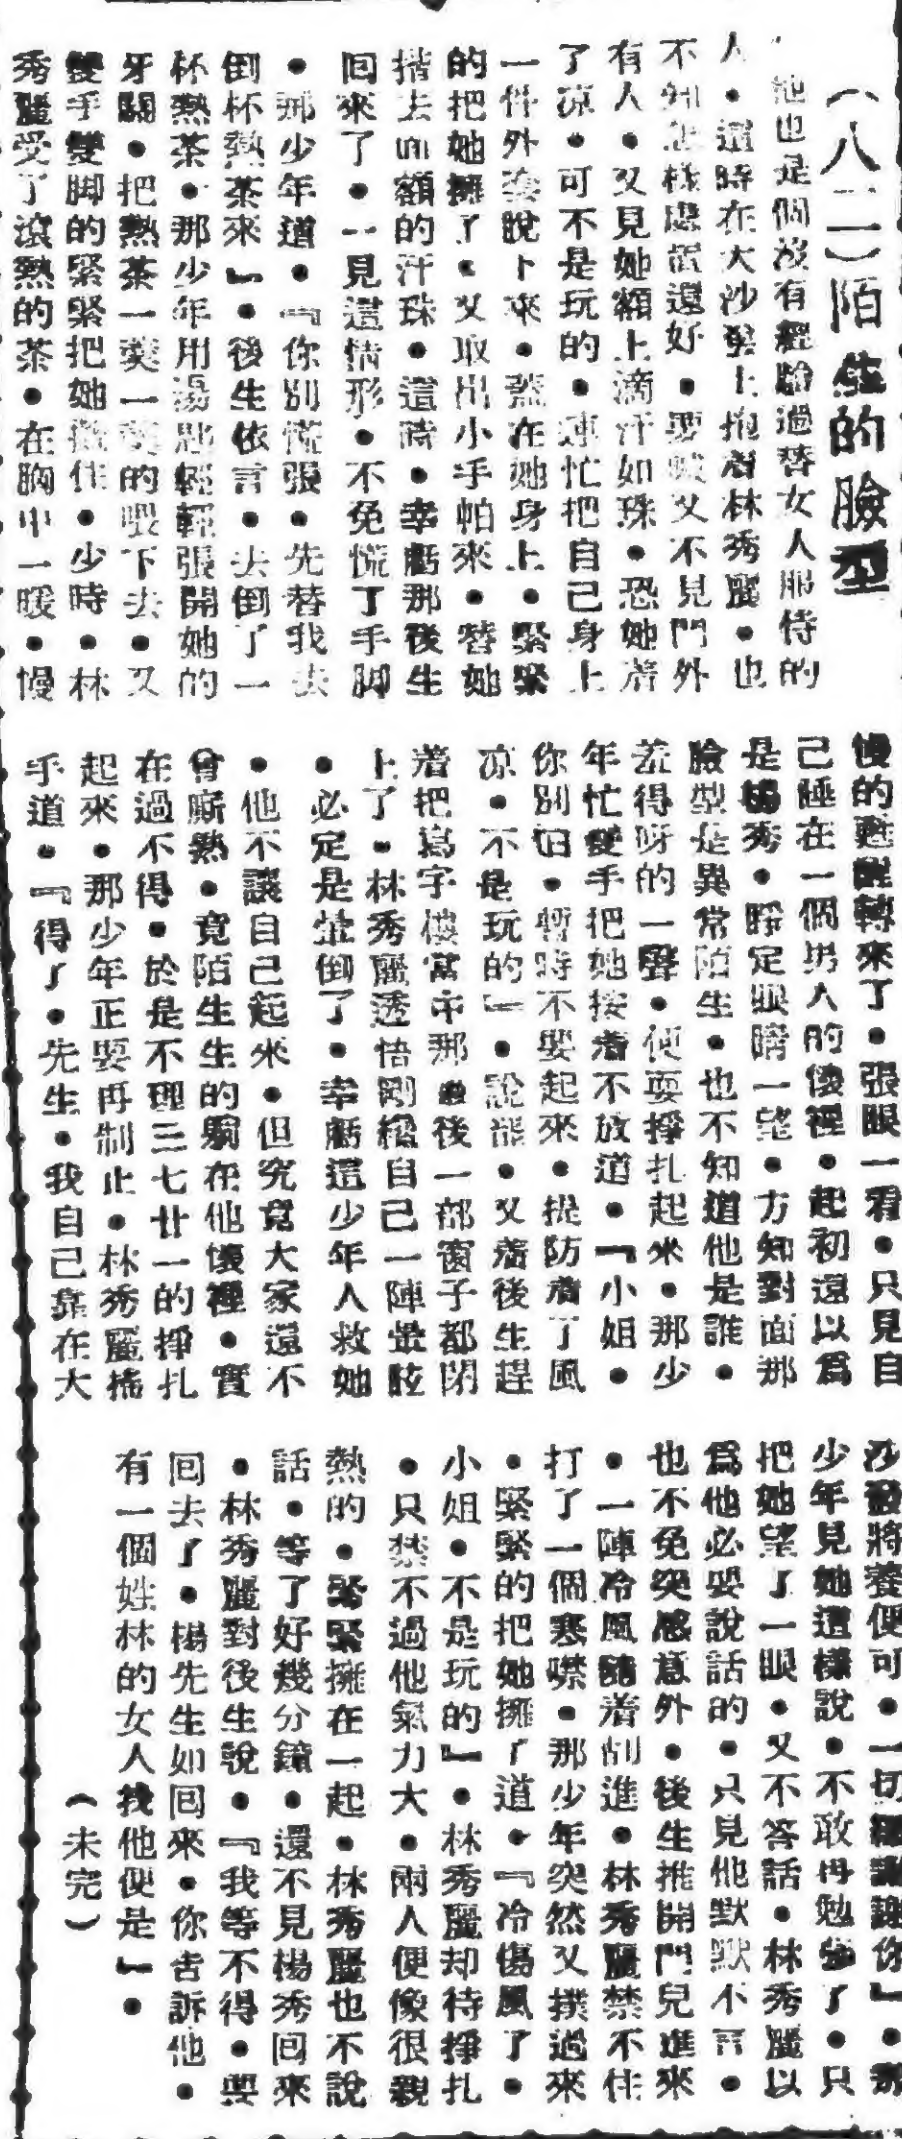 （八二）陌生的臉型
他也是個沒有經驗過替女人服侍的
人・這時在大沙發上抱着林秀麗・也
不知怎樣處置還好・要喊又不見門外
有人・又見她額上滴汗如珠・恐她着
了凉・可不是玩的・連忙把自己身上
一件外套脫下來・蓋在她身上・緊緊
的把她擁了・又取出小手帕來・替她
揩去面額的汗珠・這時・幸虧那後生
回來了・一見這情形・不免慌了手脚
・那少年道・『你別慌張・先替我去
倒杯熱茶來』・後生依言・去倒了一
杯熱茶・那少年用湯匙輕輕張開她的
牙關・把熱茶一羹一羹的喂下去・又
雙手雙脚的緊緊把她擁住・少時・林
秀麗受了滾熱的茶・在胸中一暖・慢
慢的甦醒轉來了・張眼一看・只見自
己睡在一個男人的懷裡・起初還以爲
是楊秀・睜定眼睛一望・方知對面那
臉型是異常陌生・也不知道他是誰・
羞得呀的一聲・便要掙扎起來・那少
年忙雙手把她按着不放道・『小姐・
你別怕・暫時不要起來・提防着了風
凉・不是玩的』・說罷・又着後生趕
着把寫字樓當中那後一部窗子都閉
上了・林秀麗透悟剛纔自己一陣暈眩
・必定是暈倒了・幸虧這少年人救她
・他不讓自己起來・但究竟大家還不
曾廝熱・竟陌生生的躺在他懷裡・實
在過不得・於是不理三七廿一的掙扎
起來・那少年正要再制止・林秀麗搖
手道・『得了・先生・我自己靠在大
沙發將養便可・一切都謝謝你』・那
少年見她這樣說・不敢再勉強了・只
把她望了一眼・又不答話・林秀麗以
爲他必要說話的・只見他默默不言・
也不免突感意外・後生推開門兒進來
・一陣冷風隨着刮進・林秀麗禁不住
打了一個寒噤・那少年突然又撲過來
・緊緊的把她擁了道・『冷傷風了・
小姐・不是玩的』・林秀麗却待掙扎
・只禁不過他氣力大・兩人便像很親
熱的・緊緊擁在一起・林秀麗也不說
話・等了好幾分鐘・還不見楊秀回來
・林秀麗對後生說・『我等不得・要
回去了・楊先生如回來・你告訴他・
有一個姓林的女人找他便是』・
（未完）